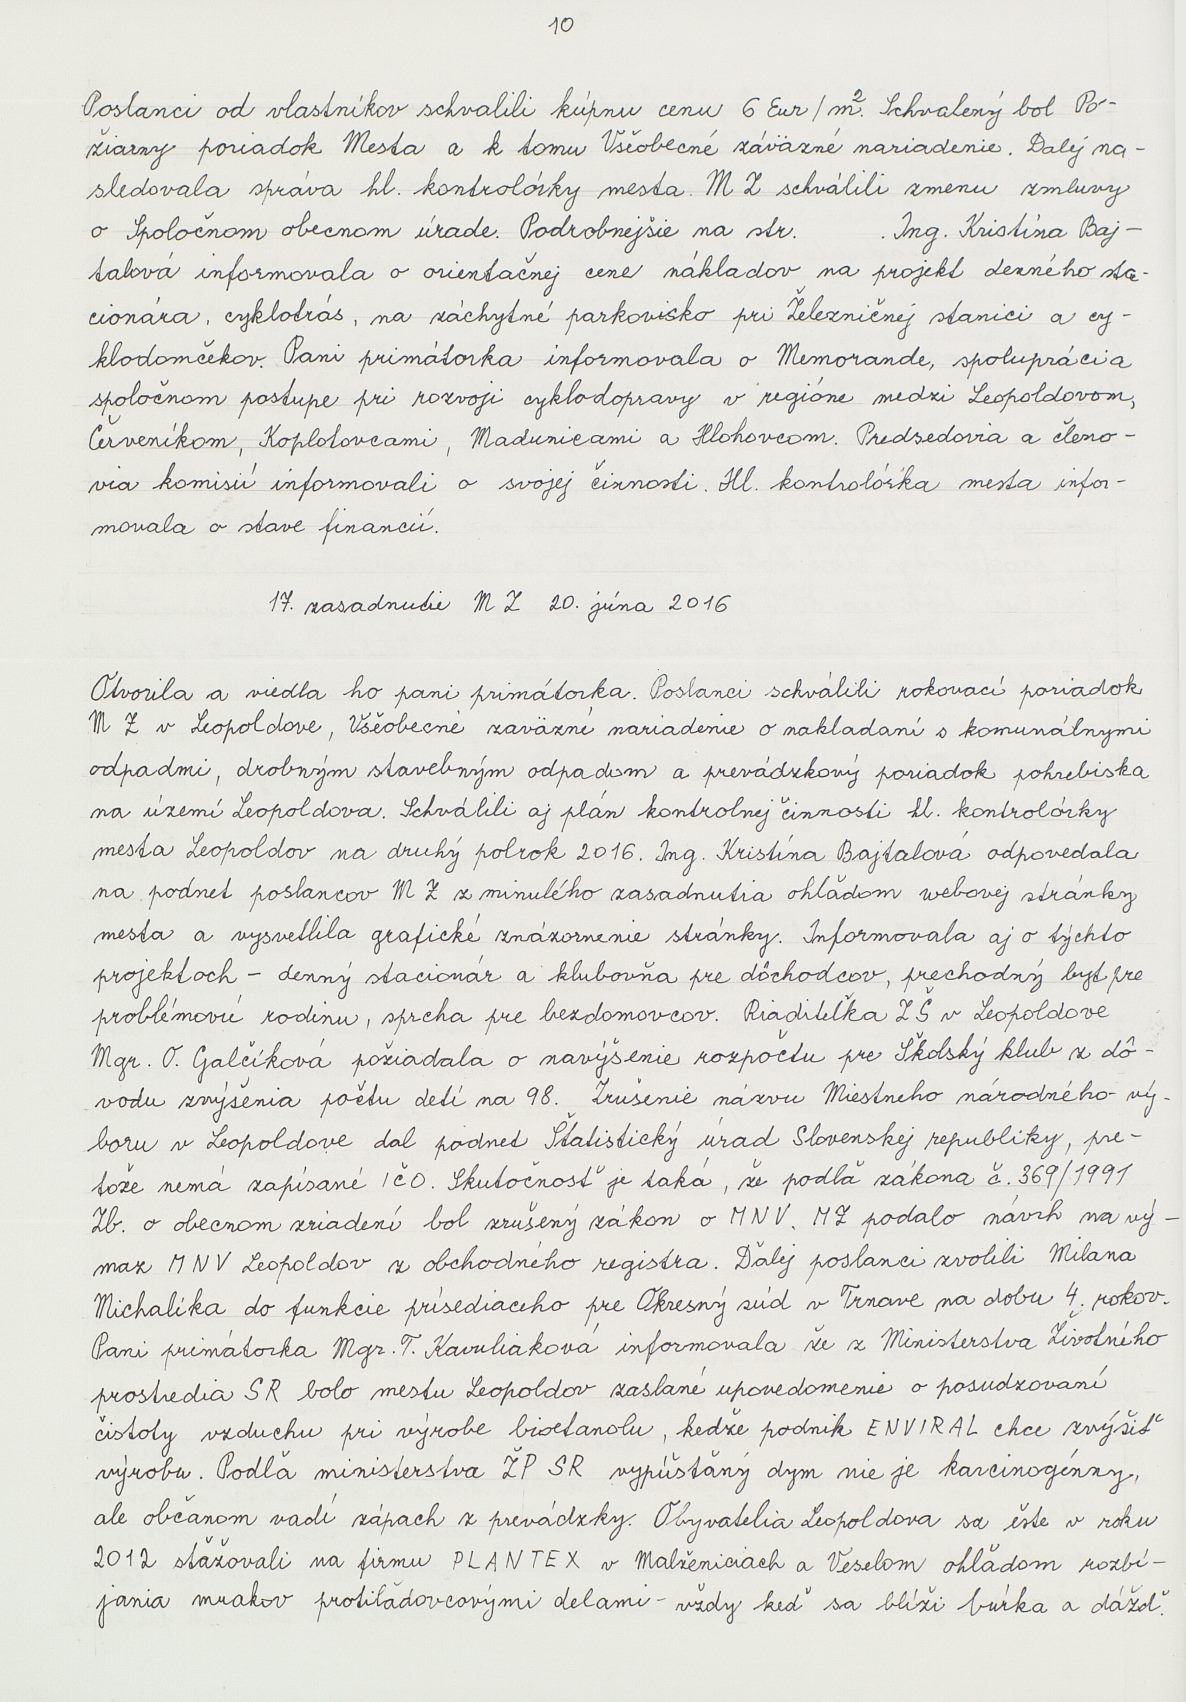 10
Poslanci od vlastníkov schvalili kúpnu cenu 6 Eur/m². Schvalený bol Po-
žiarny poriadok Mesta a k tomu Všeobecné záväzné nariadenie. Dalej na-
sledovala správa hl. kontrolórky mesta. M Z schválili zmenu zmluvy
o Spoločnom obecnom úrade. Podrobnejšie na str. . Ing. Kristína Baj-
talová informovala o orientačnej cene nákladov na projekt denného sta-
cionára, cyklotrás, na záchytné parkovisko pri Železničnej stanici a cy-
klodomčekov. Pani primátorka informovala o Memorande, spolupráci a
spoločnom postupe pri rozvoji cyklodopravy v regióne medzi Leopoldovom,
Červeníkom, Koplotovcami, Madunicami a Hlohovcom. Predsedovia a členo-
via komisií informovali o svojej činnosti. Hl. kontrolórka mesta infor-
movala o stave financií.
17. zasadnutie M Z 20. júna 2016
Otvorila a viedla ho pani primátorka. Poslanci schválili rokovací poriadok
M Z v Leopoldove, Všeobecné zaväzné nariadenie o nakladaní s komunálnymi
odpadmi, drobným stavebným odpadom a prevádzkový poriadok pohrebiska
na území Leopoldova. Schválili aj plán kontrolnej činnosti hl. kontrolórky
mesta Leopoldov na druhý polrok 2016. Ing. Kristína Bajtalová odpovedala
na podnet poslancov M Z z minulého zasadnutia ohľadom webovej stránky
mesta a vysvetlila grafické znázornenie stránky. Informovala aj o týchto
projektoch - denný stacionár a klubovňa pre dôchodcov, prechodný byt pre
problémovú rodinu, sprcha pre bezdomovcov. Riaditeľka ZŠ v Leopoldove
Mgr. O. Galčíková požiadala o navýšenie rozpočtu pre Školský klub z dô-
vodu zvýšenia počtu detí na 98. Zrušenie názvu Miestneho národného vý-
boru v Leopoldove dal podnet Štatistický úrad Slovenskej republiky, pre-
tože nemá zapísané IČO. Skutočnosť je taká, že podľa zákona č. 369/1991
Zb. o obecnom zriadení bol zrušený zákon o MNV. MZ podalo návrh na vý-
maz MNV Leopoldov z obchodného registra. Ďalej poslanci zvolili Milana
Michalíka do funkcie prísediaceho pre Okresný súd v Trnave na dobu 4. rokov.
Pani primátorka Mgr. T. Kavuliaková informovala že z Ministerstva Životného
prostredia SR bolo mestu Leopoldov zaslané upovedomenie o posudzovaní
čistoty vzduchu pri výrobe bioetanolu, kedže podnik ENVIRAL chce zvýšiť
výrobu. Podľa ministerstva ŽP SR vypúšťaný dym nie je karcinogénny,
ale občanom vadí zápach z prevádzky. Obyvatelia Leopoldova sa ešte v roku
2012 stažovali na firmu PLANTEX v Malženiciach a Veselom ohľadom rozbí-
jania mrakov protiľadovcovými delami - vždy keď sa blíži búrka a dážď.